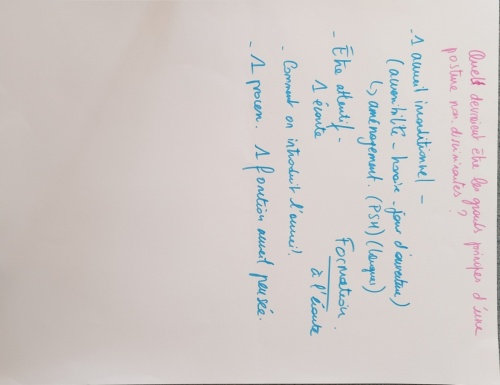 Quels devraient être les grands principes d'une
posture non-discriminantes ?
- 1 accueil inconditionnel -
(accessibilité - horaire - jour d'ouverture)
↳ aménagement. (PSH) (langues)
- Être attentif -
1 écoute
Formation.
à l'écoute
- Comment on introduit l'accueil.
- 1 process. 1 fonction accueil pensée.